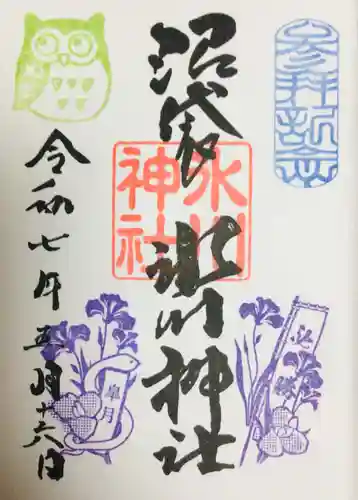 参拝記念
沼袋 氷川神社
氷川神社
令和七年五月十六日
皐月